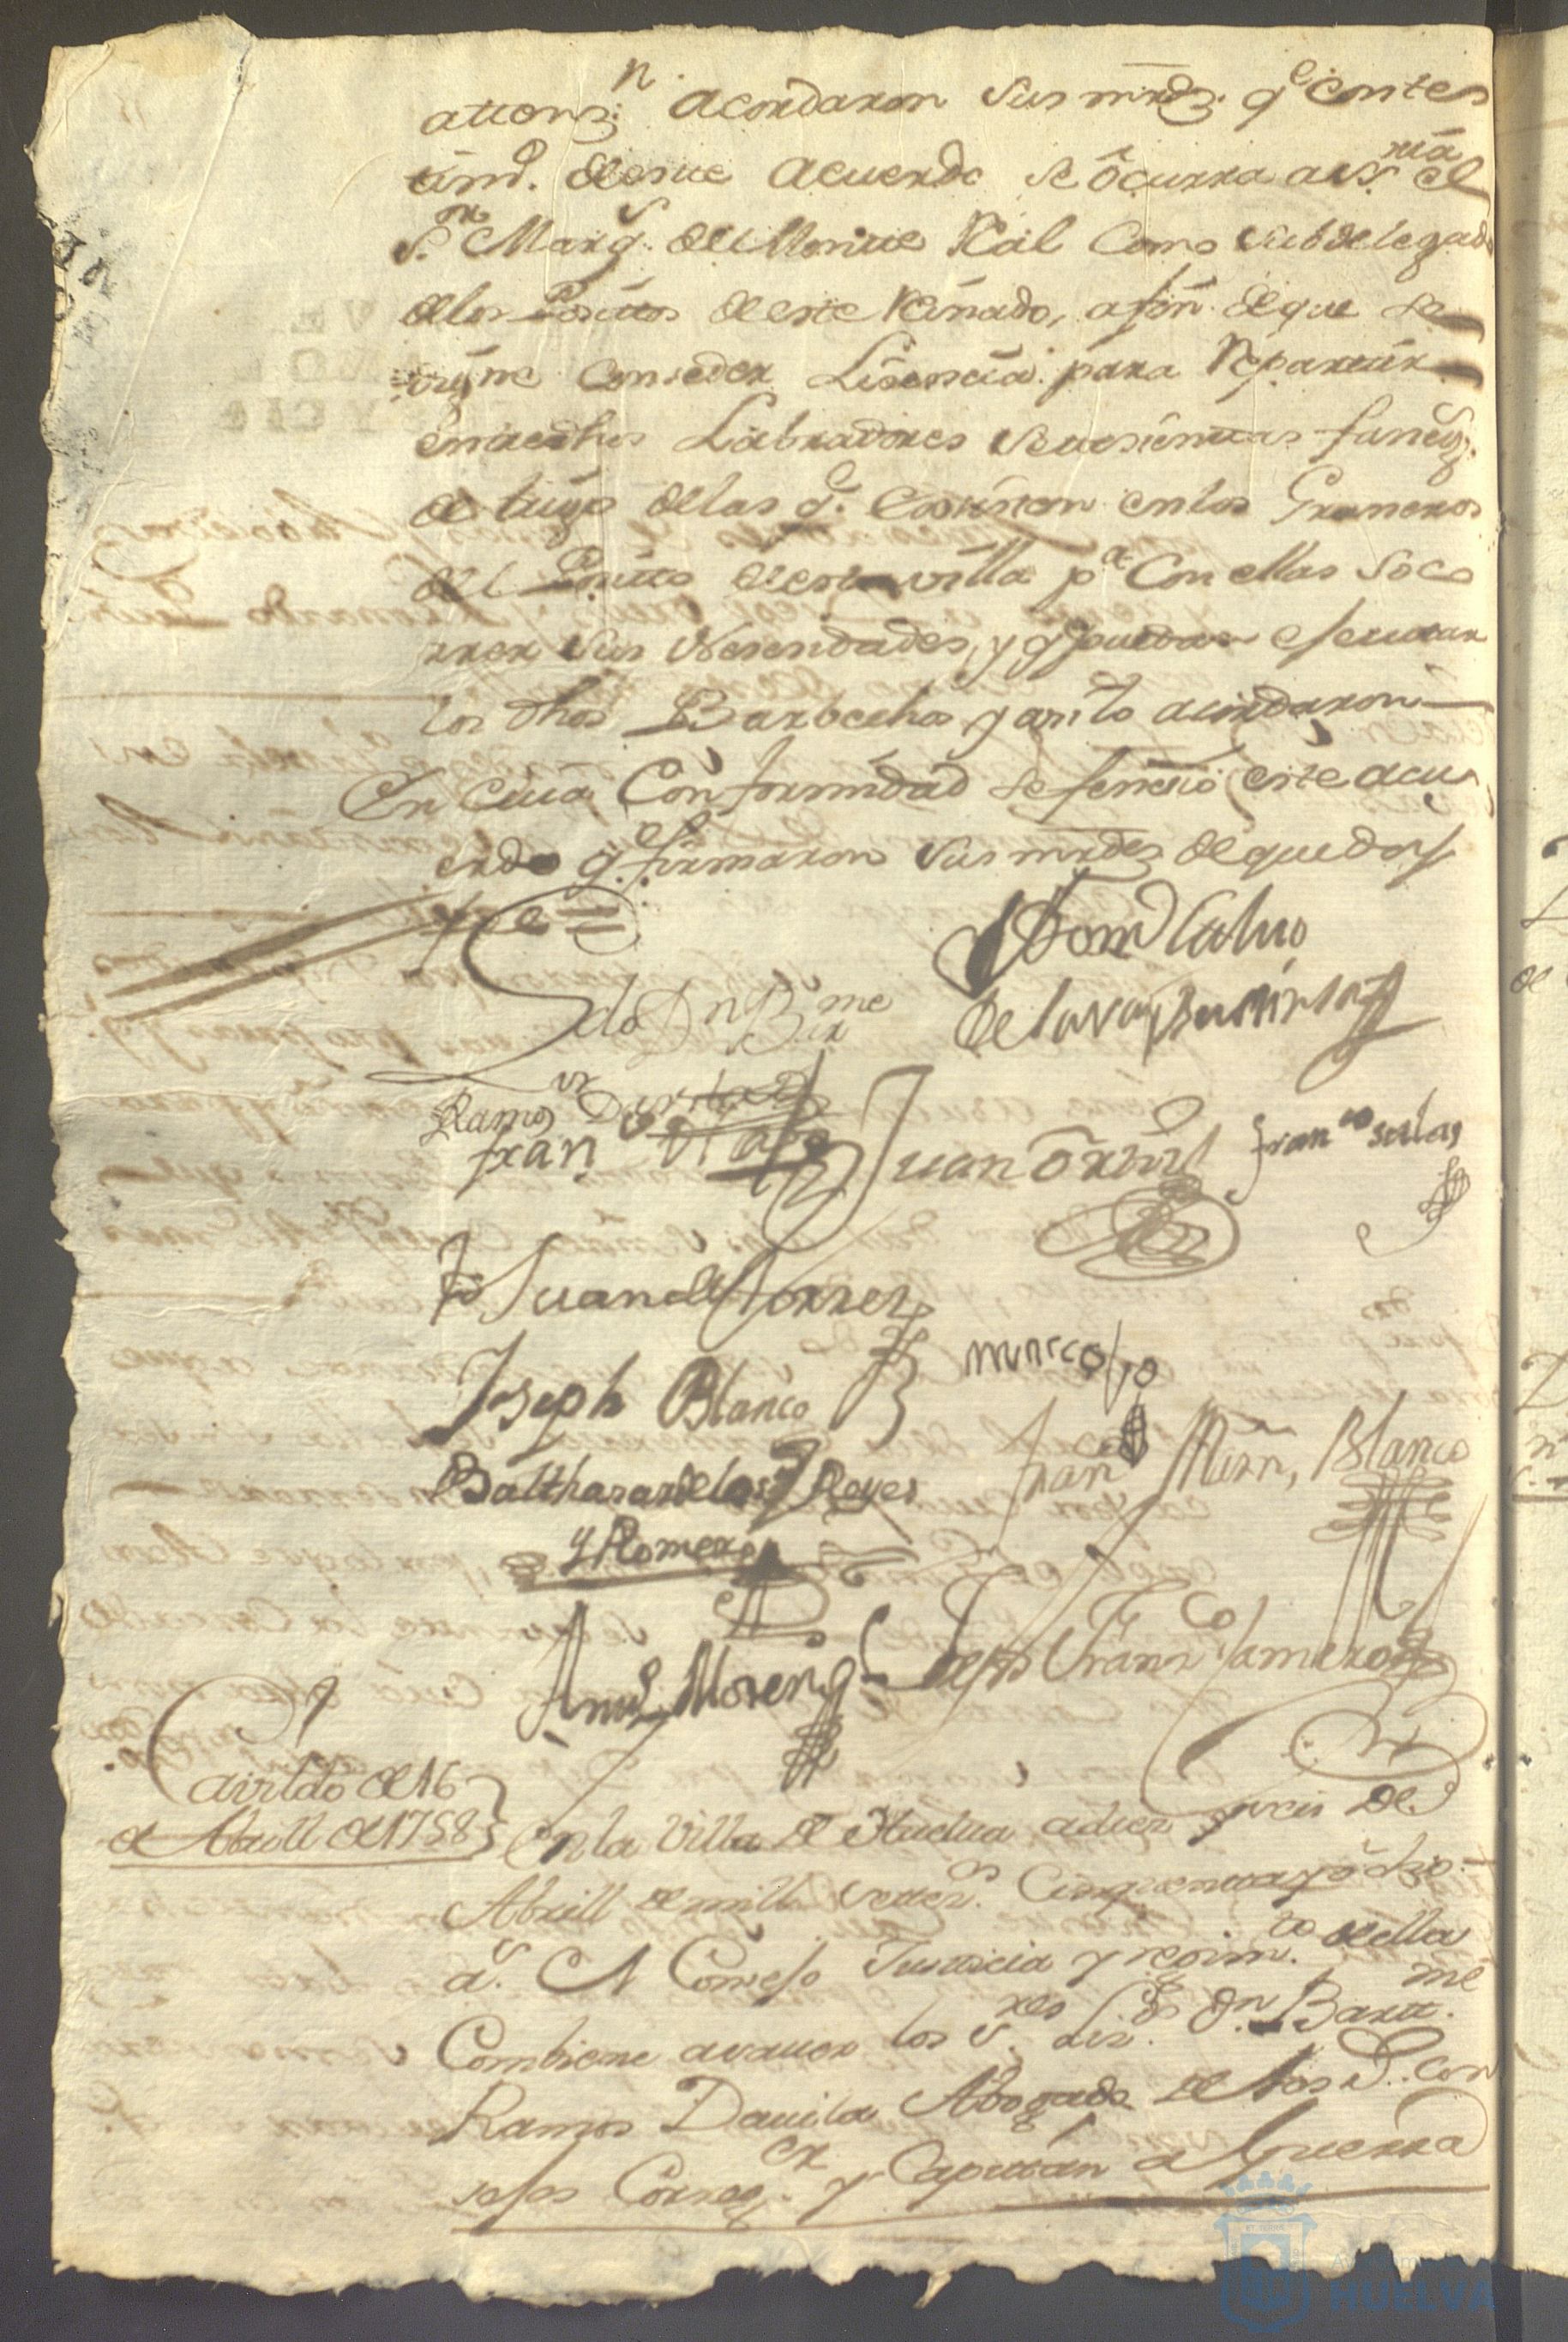 attenz.n acordaron sus mrds. qe con tes
tim.o de este acuerdo se ocurra a su s.ria el
S.or Marq.s del Monte Real como subdelegado
de los Positos de este Reinado, a fin de que se
digne conseder Lisencia para Repartir
entre dhos Labradores setesientas faneg.s
de trigo de las q.e existen en los Graneros
del Posito de esta villa p.a Con ellas soco
rrer sus Nesesidades, y q.e puedan efectuar
los dhos Barbechos y asi lo acordaron
En cuia Conformidad se fenesió este acu
erdo q.e firmaron sus mrdes de que doy
fee =
Ldo Dn Bme
Ramos Davila
Domo Calvo
de la va y Bustista
Fran.co Diaz
Juan Ortiz
fran.co sulas
Juan de Torres
Joseph Blanco
Marco
Balthasar de los Reyes
y Romero
Fran.co Mirn, Blanco
Ant.o Moreno
Joseph Fran.co Jamero
Cavildo de 16
de Abrill de 1758
En la Villa de Huelva a diez y seis de
Abrill de mill setez.os Cinquenta y ocho
a.s El Consejo Justicia y regim.to de ella
Combiene a saver los S.res Lis.do Dn Bartt.me
Ramos Davila Abogado de los R.s Con
sejos Correg.or y Capitán a Guerra
HUELVA